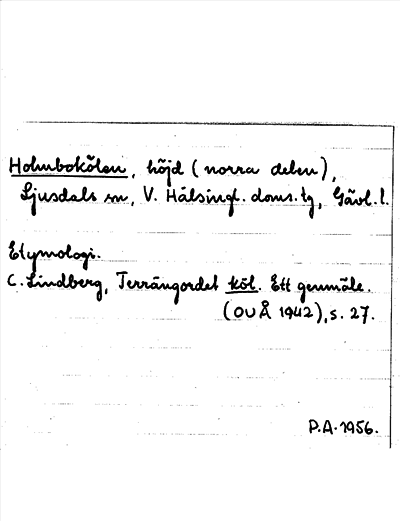 Holmbokölen, höjd (norra delen),
Ljusdals sn, V. Hälsingl. doms.tg, Gävl.l.
Etymologi.
C. Lindberg, Terrängordet köl. Ett genmäle.
(OUÅ 1942), s. 27.
P.A. 1956.